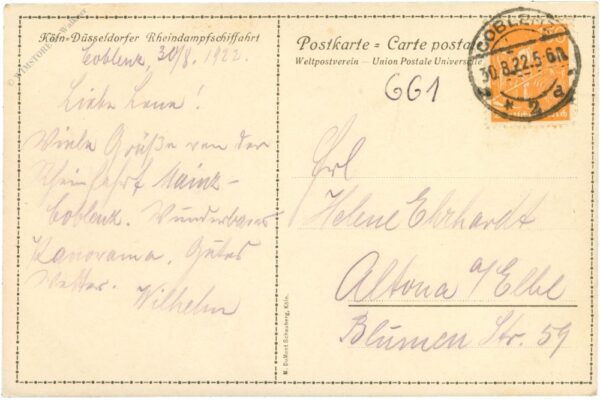 Köln-Düsseldorfer Rheindampfschiffahrt
Coblenz, 30/8. 1922.
Liebe Lene!
Viele Grüße von der
Rheinfahrt Mainz-
Coblenz. Wunderbares
Panorama. Gutes
Wetter. Wilhelm
Postkarte = Carte postale
Weltpostverein — Union Postale Universelle
661
COBLENZ
30.8.22.5-6N.
* 2 d
Frl
Helene Ehrhardt
Altona a/Elbe
Blumen Str. 59
M. DuMont Schauberg, Köln.